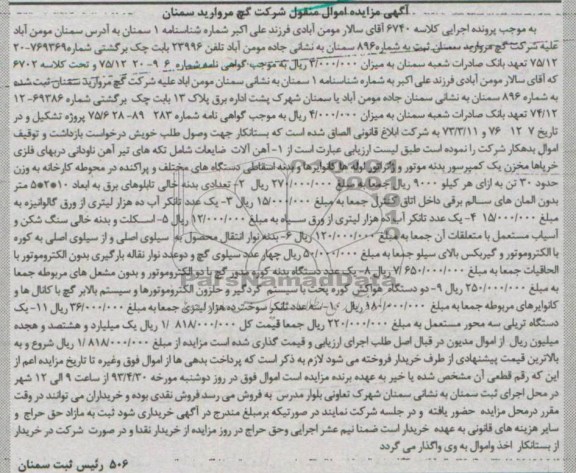 آگهی مزایده اموال منقول شرکت گچ مروارید سمنان
به موجب پرونده اجرایی کلاسه ۶۷۴۰ آقای سالار مومن آبادی فرزند علی اکبر شماره شناسنامه ۱ سمنان به آدرس سمنان مومن آباد
علیه شرکت گچ مروارید سمنان ثبت به شماره۸۹۶ سمنان به نشانی جاده مومن آباد تلفن ۲۳۹۹۶ بابت چک برگشتی شماره۷۶۹۳۶۹-۲۰
۷۵/۱۲ تعهد بانک صادرات شعبه سمنان به میزان ۴/۰۰۰/۰۰۰ ریال به موجب گواهی نامه شماره ۶ ۹-۲۰ ۷۵/۱۲ و تحت کلاسه ۶۷۰۲
که آقای سالار مومن آبادی فرزند علی اکبر به شماره شناسنامه ۱ سمنان به نشانی سمنان مومن اباد علیه شرکت گچ مروارید سمنان ثبت شده
به شماره ۸۹۶ سمنان به نشانی سمنان جاده مومن آباد یا سمنان شهرک پشت اداره برق پلاک ۱۳ بابت چک برگشتی شماره ۶۹۳۸۶-۱۲
۷۴/۱۲ تعهد بانک صادرات شعبه سمنان به میزان ۴/۰۰۰/۰۰۰ ریال به موجب گواهی نامه شماره ۲۸۳ ۸۹-۲۸ ۷۵/۶ پروژه تشکیل و در
تاریخ ۷ ۱۲ ۷۶ و ۷۳/۳/۱۱ به شرکت ابلاغ قانونی الصاق شده است که بستانکار جهت وصول طلب خویش درخواست بازداشت و توقیف
اموال بدهکار شرکت را نموده است طبق لیست ارزیابی عبارت است از ۱-آهن آلات ضایعات شامل تکه های تیر آهن ناودانی دربهای فلزی
خرپاها مخزن یک کمپرسور بدنه موتور و ژنراتور لوله ها کانوایرها و بدنه اسقاطی دستگاه های مختلف و پراکنده در محوطه کارخانه به وزن
حدود ۳۰ تن به ازای هر کیلو ۹۰۰۰ ریال جمعا به مبلغ ۲۷۰/۰۰۰/۰۰۰ ریال ۲- تعدادی بدنه خالی تابلوهای برق به ابعاد ۱۰*۲*۵ متر
بدون المان های سالم برقی داخل اتاق کنترل جمعا به مبلغ ۱۵/۰۰۰/۰۰۰ ریال ۳- یک عدد تانکر آب ده هزار لیتری از ورق گالوانیزه به
مبلغ ۱۵/۰۰۰/۰۰۰ ۴- یک عدد تانکر آب ده هزار لیتری از ورق سیاه به مبلغ ۱۲/۰۰۰/۰۰۰ ریال ۵- اسکلت و بدنه خالی سنگ شکن و
آسیاب مستعمل با متعلقات آن جمعا به مبلغ ۱۲۰/۰۰۰/۰۰۰ ریال ۶- بدنه نوار انتقال محصول به سیلوی اصلی و از سیلوی اصلی به کوره
با الکتروموتور و گیربکس بالای سیلو جمعا به مبلغ ۵۰/۰۰۰/۰۰۰ ریال چهار عدد سیلوی گچ و دوعدد نوار نقاله بارگیری بدون الکتروموتور با
الحاقیات جمعا به مبلغ ۶۵۰/۰۰۰/۰۰۰ ۷/ ریال ۸- یک عدد دستگاه بدنه کوره بدون گچ با دو الکتروموتور و بدون مشعل های مربوطه جمعا
به مبلغ ۲۵۰/۰۰۰/۰۰۰ ریال ۹- دو دستگاه هواکش کوره پخت با سیستم گردگیر و حلزون الکتروموتورها و سیستم بالابر گچ با کانال ها و
کانوایرهای مربوطه جمعا به مبلغ ۱۸۰/۰۰۰/۰۰۰ ریال ۱۰- سه عدد تانکر سوخت ده هزار لیتری جمعا به مبلغ ۳۶/۰۰۰/۰۰۰ ریال ۱۱- یک
دستگاه تریلی سه محور مستعمل به مبلغ ۲۲۰/۰۰۰/۰۰۰ ریال جمعا قیمت کل ۸۱۸/۰۰۰/۰۰۰ ۱/ ریال یک میلیارد و هشتصد و هجده
میلیون ریال از اموال مدیون در قبال اصل طلب اجرای ارزیابی و قیمت گذاری شده است مزایده از مبلغ ۸۱۸/۰۰۰/۰۰۰ ۱/ ریال شروع و به
بالاترین قیمت پیشنهادی از طرف خریدار فروخته می شود لازم به ذکر است که پرداخت بدهی ها از اموال فوق وغیره تا تاریخ مزایده اعم از
این که رقم قطعی آن مشخص شده یا خیر به عهده برنده مزایده است اموال فوق در روز دوشنبه مورخه ۹۳/۴/۳۰ از ساعت ۹ الی ۱۲ شهر
در محل اجرای ثبت سمنان به نشانی سمنان شهرک تعاونی بلوار مدرس به فروش می رسد فروش نقدی بوده و خریداران می توانند در وقت
مقرر درمحل مزایده حضور یافته و در جلسه شرکت نمایند در صورتیکه برمبلغ مندرج در آگهی خریداری شود ثبت به مازاد حق حراج و
سایر هزینه های قانونی به عهده خریدار است ضمنا نیم عشر اجرایی وحق حراج در روز مزایده از خریدار نقدا و در صورت شرکت در خریدار
از بستانکار اخذ واموال به وی واگذار می گردد
۵۰۶ رئیس ثبت سمنان
ParsNamadData